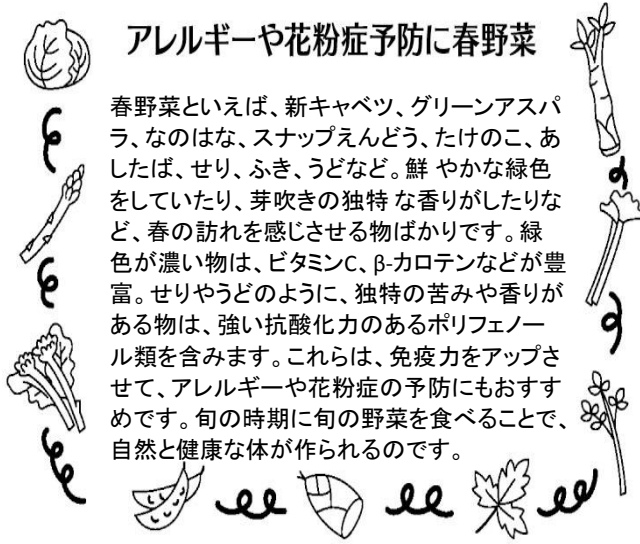 アレルギーや花粉症予防に春野菜
春野菜といえば、新キャベツ、グリーンアスパ
ラ、なのはな、スナップえんどう、たけのこ、あ
したば、せり、ふき、うどなど。鮮 やかな緑色
をしていたり、芽吹きの独特 な香りがしたりな
ど、春の訪れを感じさせる物ばかりです。緑
色が濃い物は、ビタミンC、β-カロテンなどが豊
富。せりやうどのように、独特の苦みや香りが
ある物は、強い抗酸化力のあるポリフェノー
ル類を含みます。これらは、免疫力をアップさ
せて、アレルギーや花粉症の予防にもおすす
めです。旬の時期に旬の野菜を食べることで、
自然と健康な体が作られるのです。